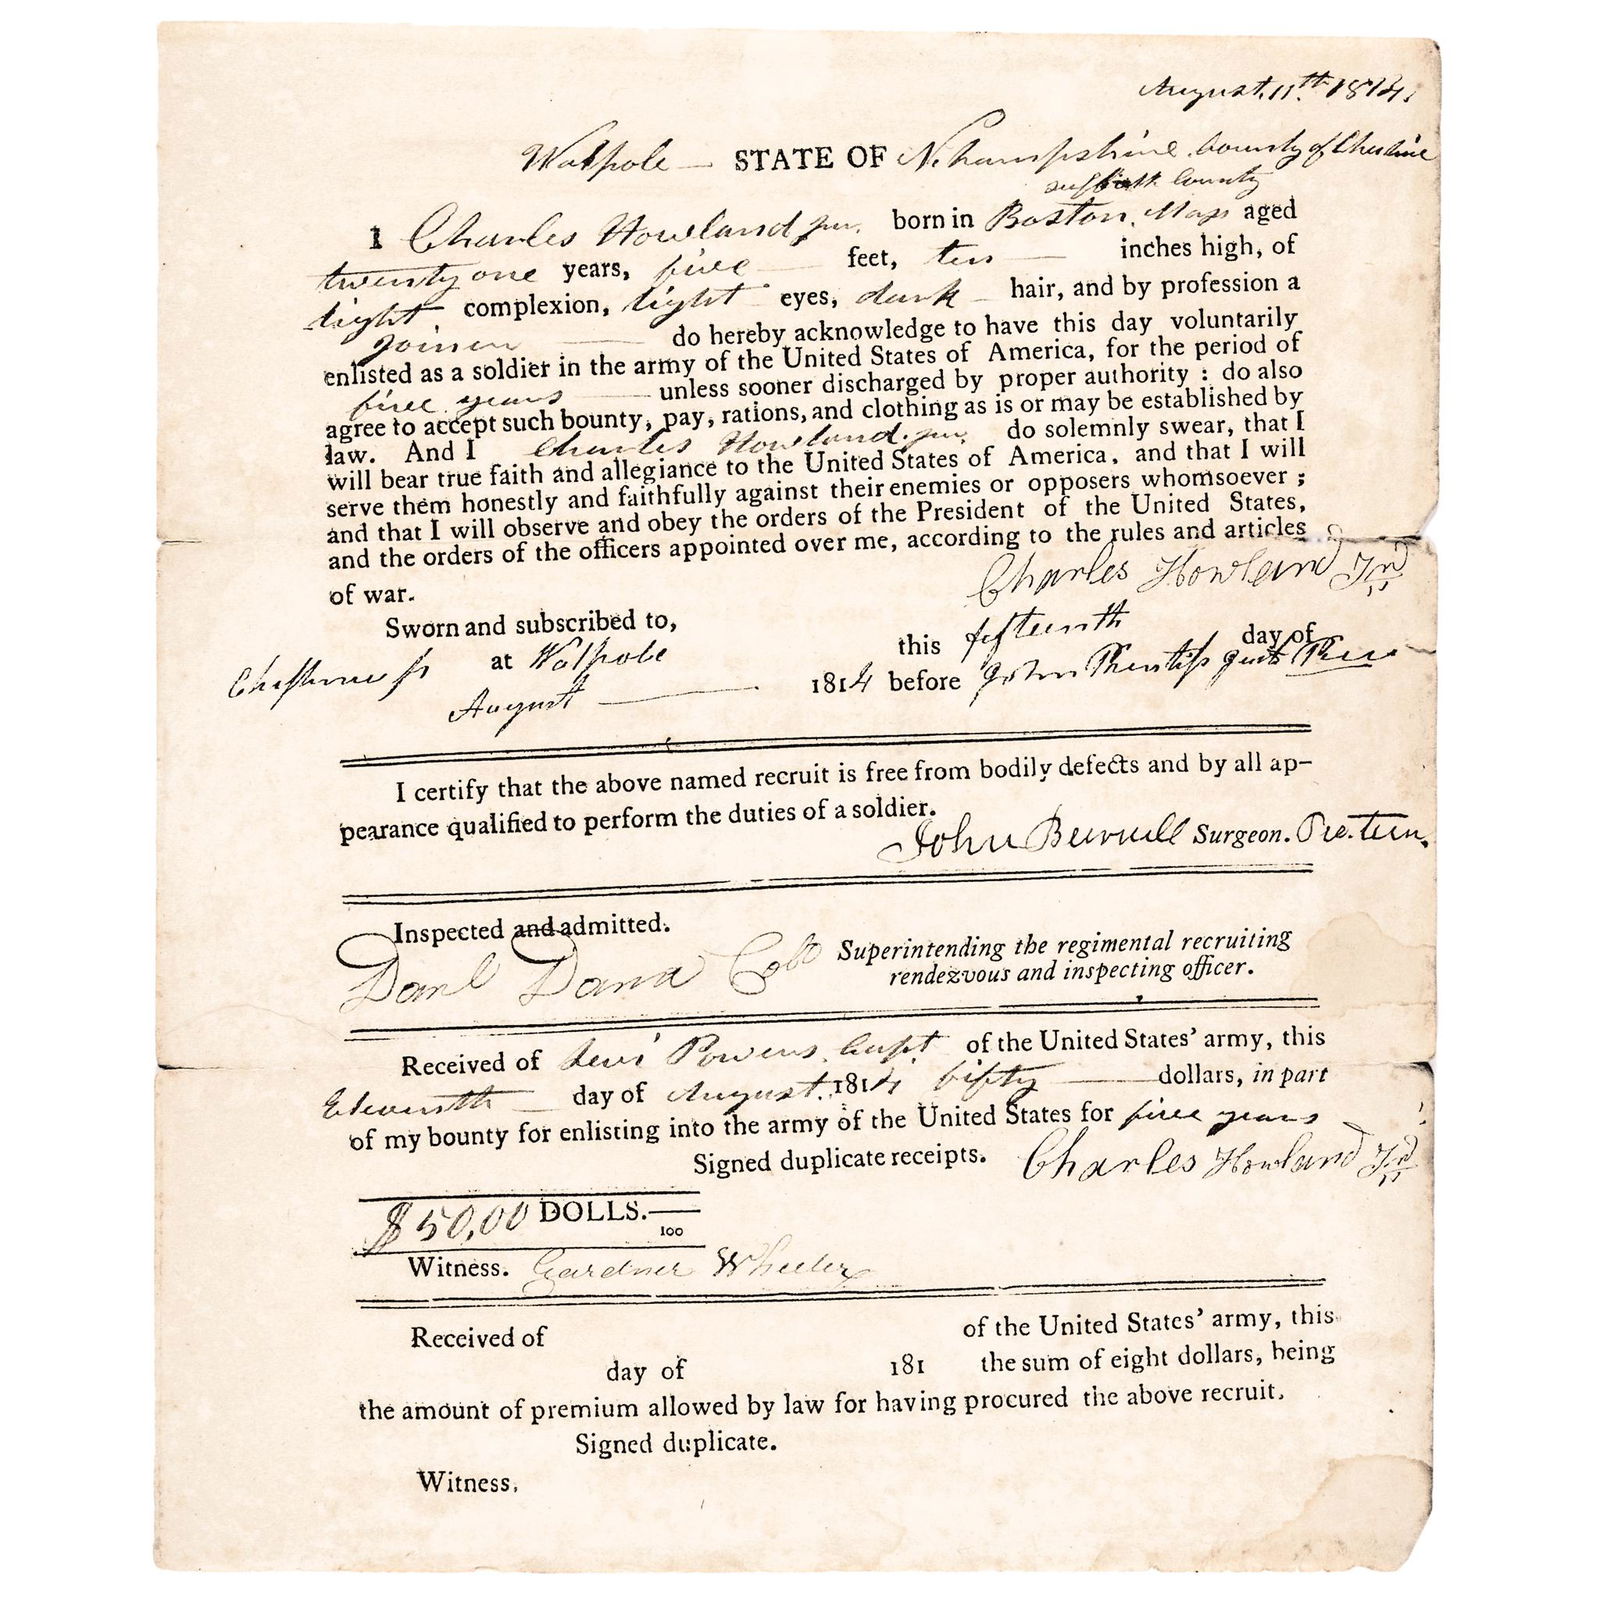 August. 11th. 1814.
Walpole — STATE OF N. hampshire. County of Cheshire
suffolk County
I Charles Howland jun. born in Boston. Mass aged
twenty one years, five — feet, ten — inches high, of
light complexion, light eyes, dark hair, and by profession a
Joiner — do hereby acknowledge to have this day voluntarily
enlisted as a soldier in the army of the United States of America, for the period of
five years — unless sooner discharged by proper authority : do also
agree to accept such bounty, pay, rations, and clothing as is or may be established by
law. And I Charles Howland. jun. do solemnly swear, that I
will bear true faith and allegiance to the United States of America, and that I will
serve them honestly and faithfully against their enemies or opposers whomsoever ;
and that I will observe and obey the orders of the President of the United States,
and the orders of the officers appointed over me, according to the rules and articles
of war.
Charles Howland Jnr
Sworn and subscribed to,
Cheshire ss at Walpole this fifteenth day of
August — 1814 before John Just Peace
I certify that the above named recruit is free from bodily defects and by all ap-
pearance qualified to perform the duties of a soldier.
John Burnell Surgeon. Pro. tem.
Inspected and admitted.
Danl Dana Colo Superintending the regimental recruiting
rendezvous and inspecting officer.
Received of Levi Powers. Capt of the United States' army, this
Eleventh — day of August. 1814 fifty — dollars, in part
of my bounty for enlisting into the army of the United States for five years
Signed duplicate receipts. Charles Howland Jnr
$50,00 DOLLS. — 100
Witness. Gardner Wheeler
Received of of the United States' army, this
day of 181 the sum of eight dollars, being
the amount of premium allowed by law for having procured the above recruit.
Signed duplicate.
Witness.